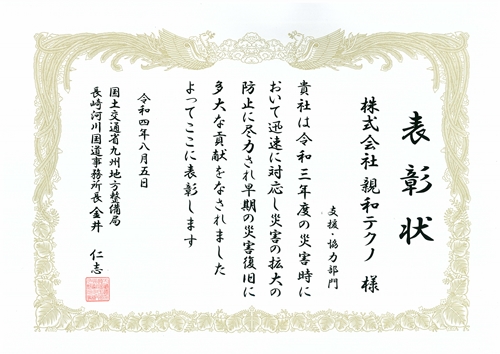 表彰状
株式会社 親和テクノ 様
支援・協力部門
貴社は令和三年度の災害時に
おいて迅速に対応し災害の拡大の
防止に尽力され早期の災害復旧に
多大な貢献をなされました
よってここに表彰します
令和四年八月五日
国土交通省九州地方整備局
長崎河川国道事務所長 金井 仁志